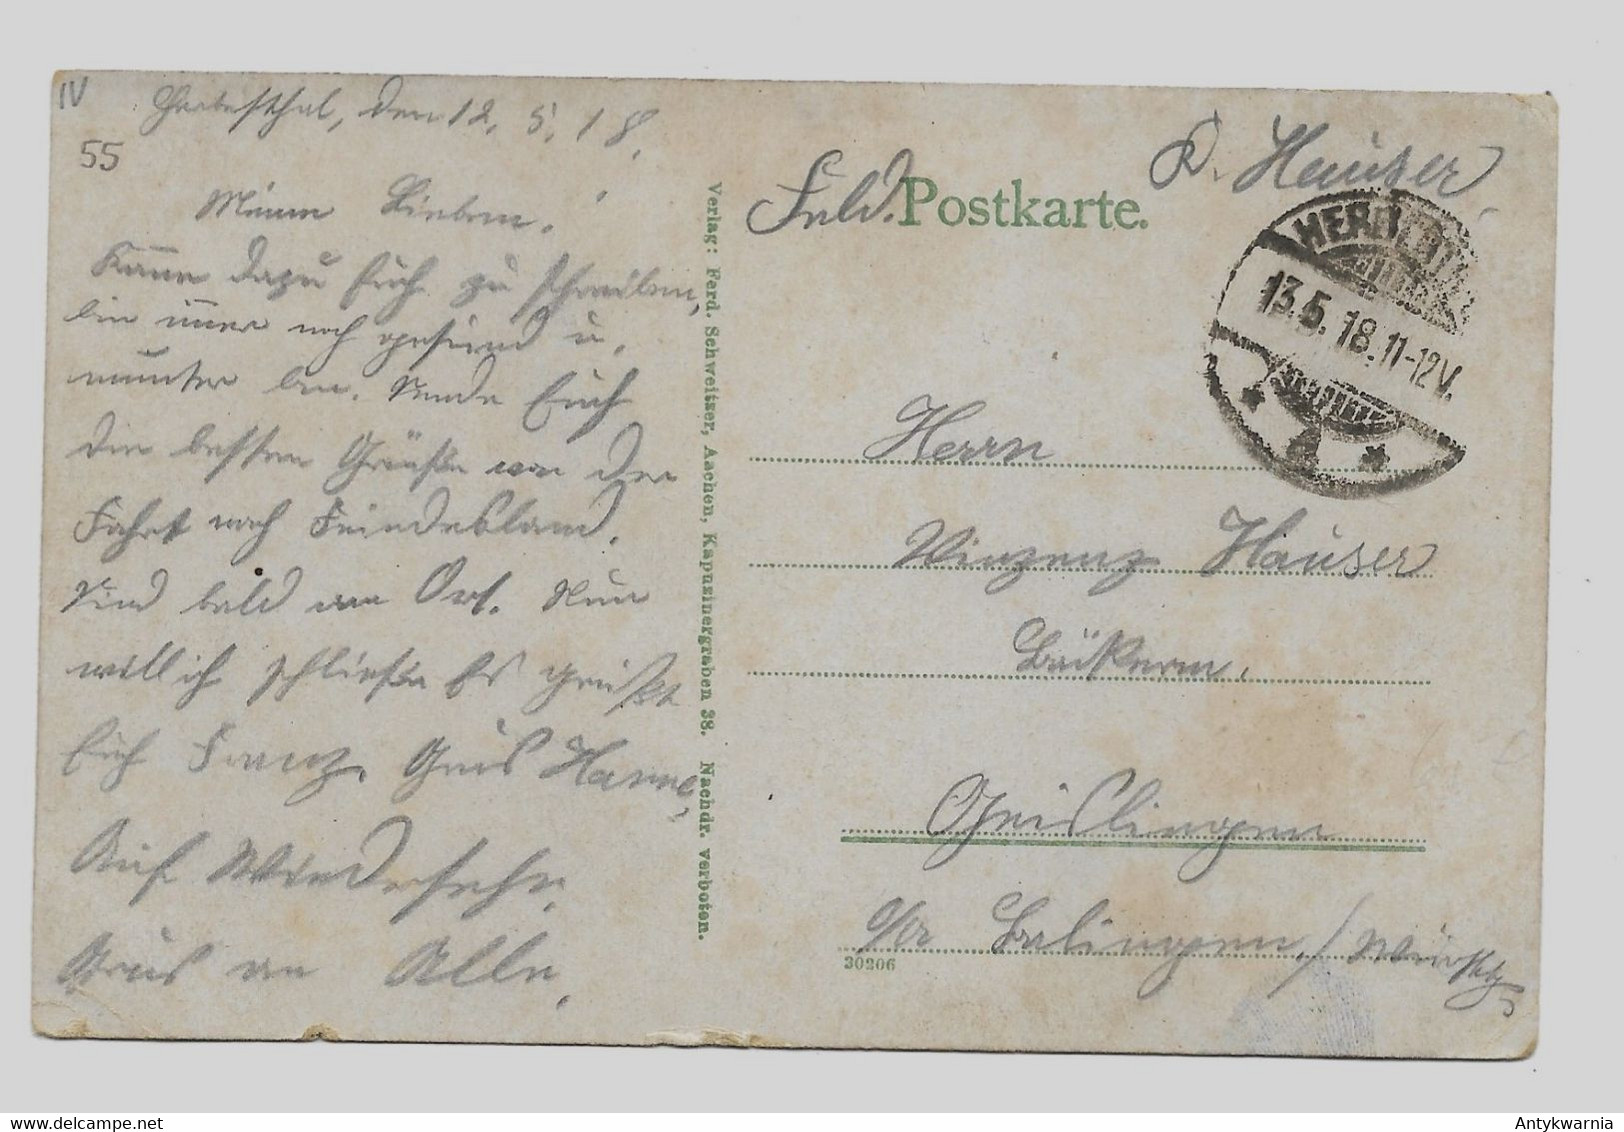 IV
55
Herbesthal, den 12. 5. 18.
Meine Lieben.
Kann dazu Euch zu schreiben,
bin immer noch gesund u.
munter bin. Sende Euch
die besten Grüße von der
Fahrt nach Feindesland.
Sind bald am Ort. Nun
will ich schließen Es grüßt
Euch Franz. Grus Hanne,
Auf Wiedersehn.
Grus an Alle.
Verlag: Ferd. Schweitzer, Aachen, Kapuzinergraben 38. Nachdr. verboten.
Feld. Postkarte.
Hauser
HERBEST
13.5.18.11-12V.
Herrn
Vinzenz Hauser
Geislingen
o/a Balingen / Württbg
30206
delcampe.net
Antykwarnia